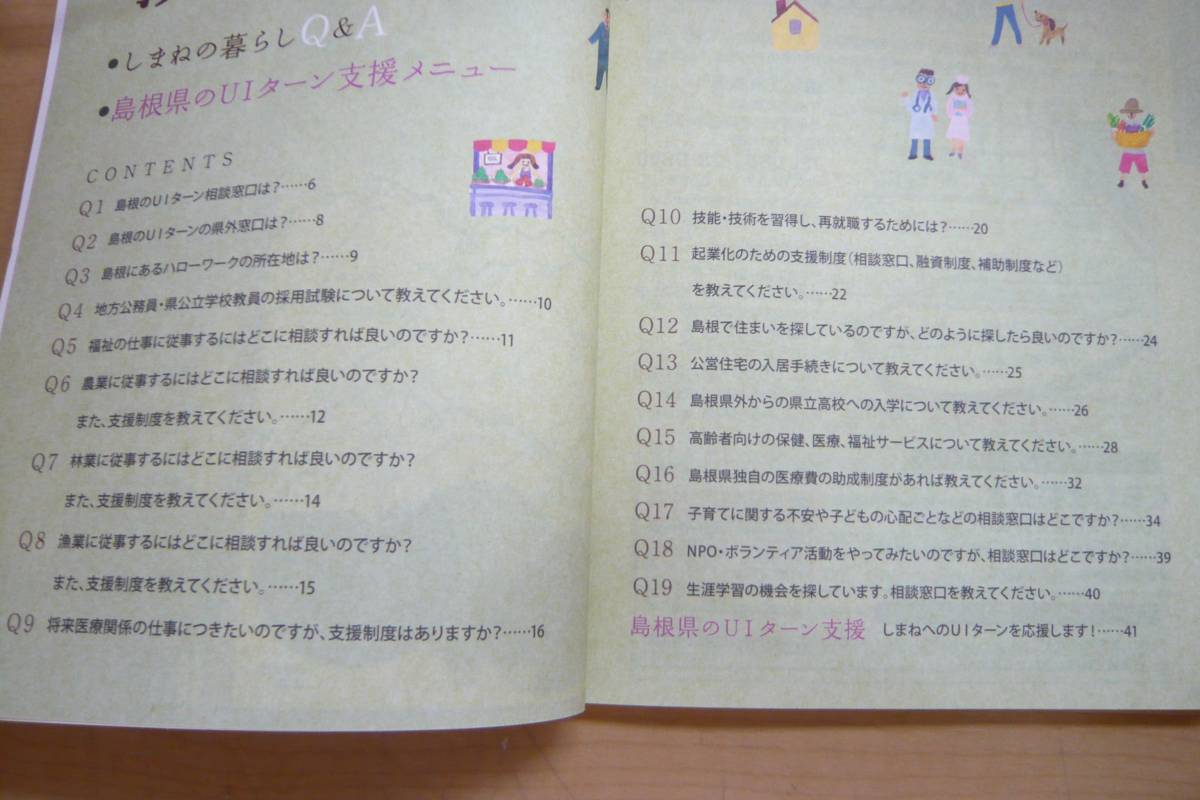 ●しまねの暮らしQ&A
●島根県のUIターン支援メニュー
CONTENTS
Q1 島根のUIターン相談窓口は?……6
Q2 島根のUIターンの県外窓口は?……8
Q3 島根にあるハローワークの所在地は?……9
Q4 地方公務員・県公立学校教員の採用試験について教えてください。……10
Q5 福祉の仕事に従事するにはどこに相談すれば良いのですか?……11
Q6 農業に従事するにはどこに相談すれば良いのですか?
また、支援制度を教えてください。……12
Q7 林業に従事するにはどこに相談すれば良いのですか?
また、支援制度を教えてください。……14
Q8 漁業に従事するにはどこに相談すれば良いのですか?
また、支援制度を教えてください。……15
Q9 将来医療関係の仕事につきたいのですが、支援制度はありますか?……16
Q10 技能・技術を習得し、再就職するためには?……20
Q11 起業化のための支援制度(相談窓口、融資制度、補助制度など)
を教えてください。……22
Q12 島根で住まいを探しているのですが、どのように探したら良いのですか?……24
Q13 公営住宅の入居手続きについて教えてください。……25
Q14 島根県外からの県立高校への入学について教えてください。……26
Q15 高齢者向けの保健、医療、福祉サービスについて教えてください。……28
Q16 島根県独自の医療費の助成制度があれば教えてください。……32
Q17 子育てに関する不安や子どもの心配ごとなどの相談窓口はどこですか?……34
Q18 NPO・ボランティア活動をやってみたいのですが、相談窓口はどこですか?……39
Q19 生涯学習の機会を探しています。相談窓口を教えてください。……40
島根県のUIターン支援 しまねへのUIターンを応援します!……41